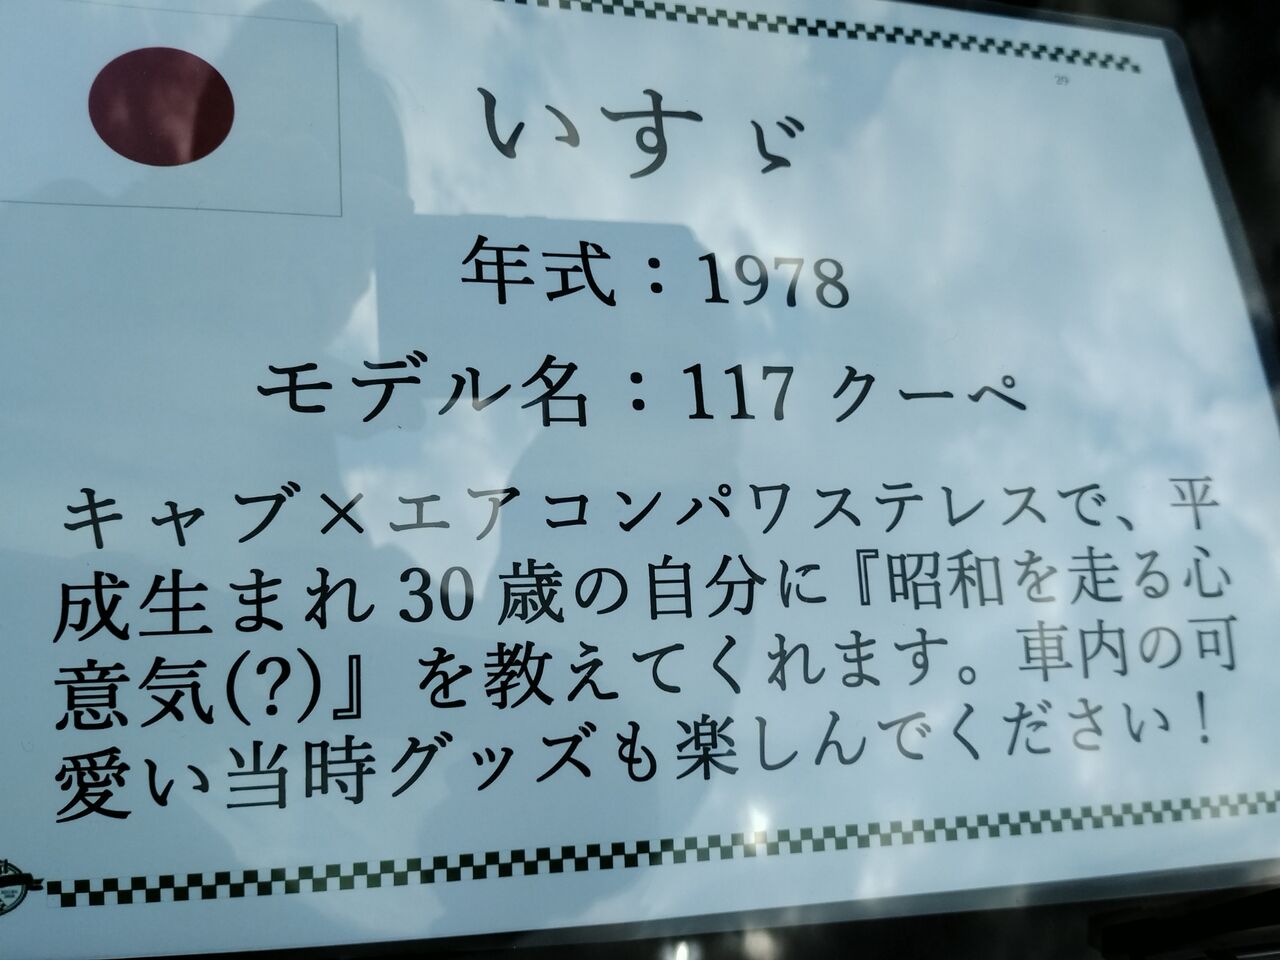 29
いすゞ
年式：1978
モデル名：117 クーペ
キャブ×エアコンパワステレスで、平
成生まれ 30 歳の自分に『昭和を走る心
意気(?)』を教えてくれます。車内の可
愛い当時グッズも楽しんでください！